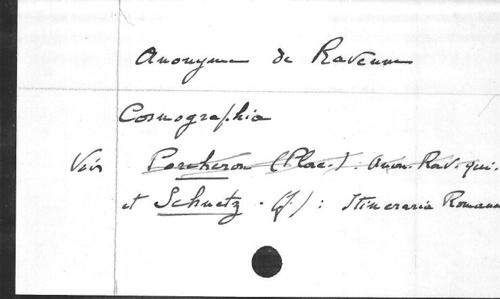 Anonyme de Ravenne
Cosmographia
Voir Porcheron (Plac.). Anon. Rav. qui.
et Schnetz (J.) : Itineraria Romana